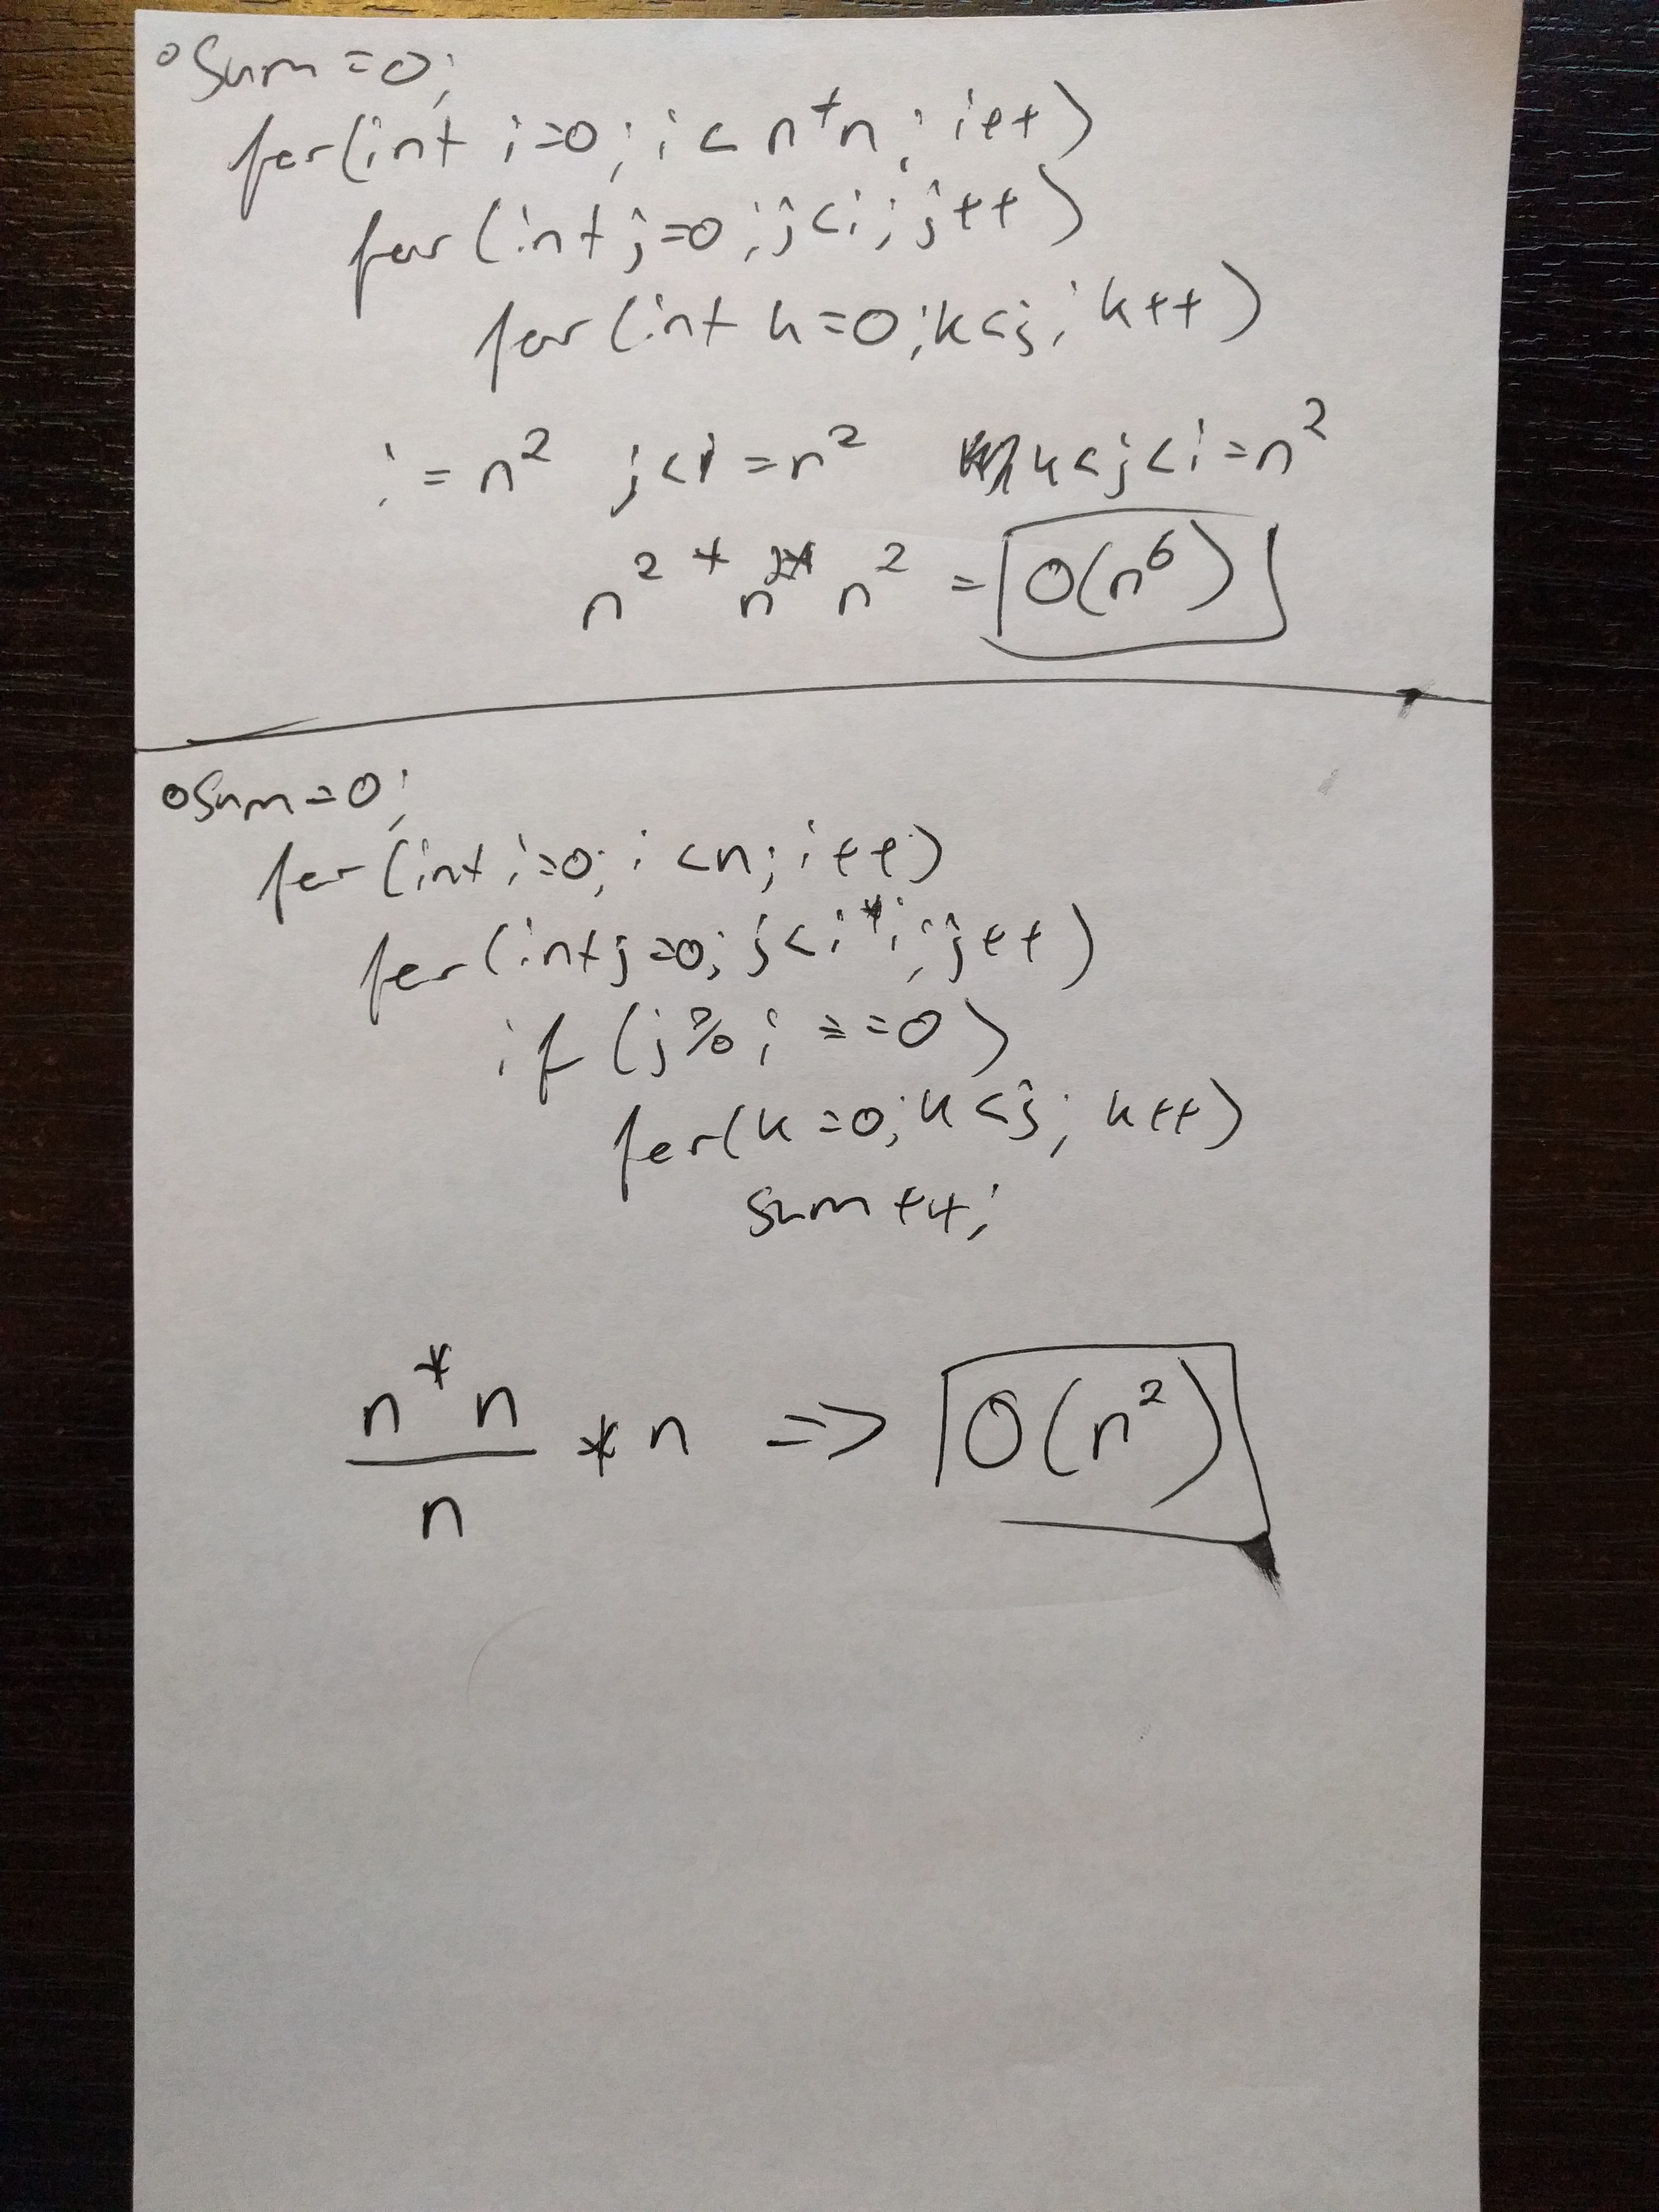 Sum = 0;
for(int i=0; i < n*n; i++)
for(int j=0; j<i; j++)
for(int k=0; k<j; k++)
i = n² j<i = n² k<j<i = n²
n² * n² * n² = O(n⁶)
Sum = 0;
for(int i=0; i<n; i++)
for(int j=0; j<i*i; j++)
if (j % i ==0)
for(k=0; k<j; k++)
sum++;
n*n
n
* n => O(n²)